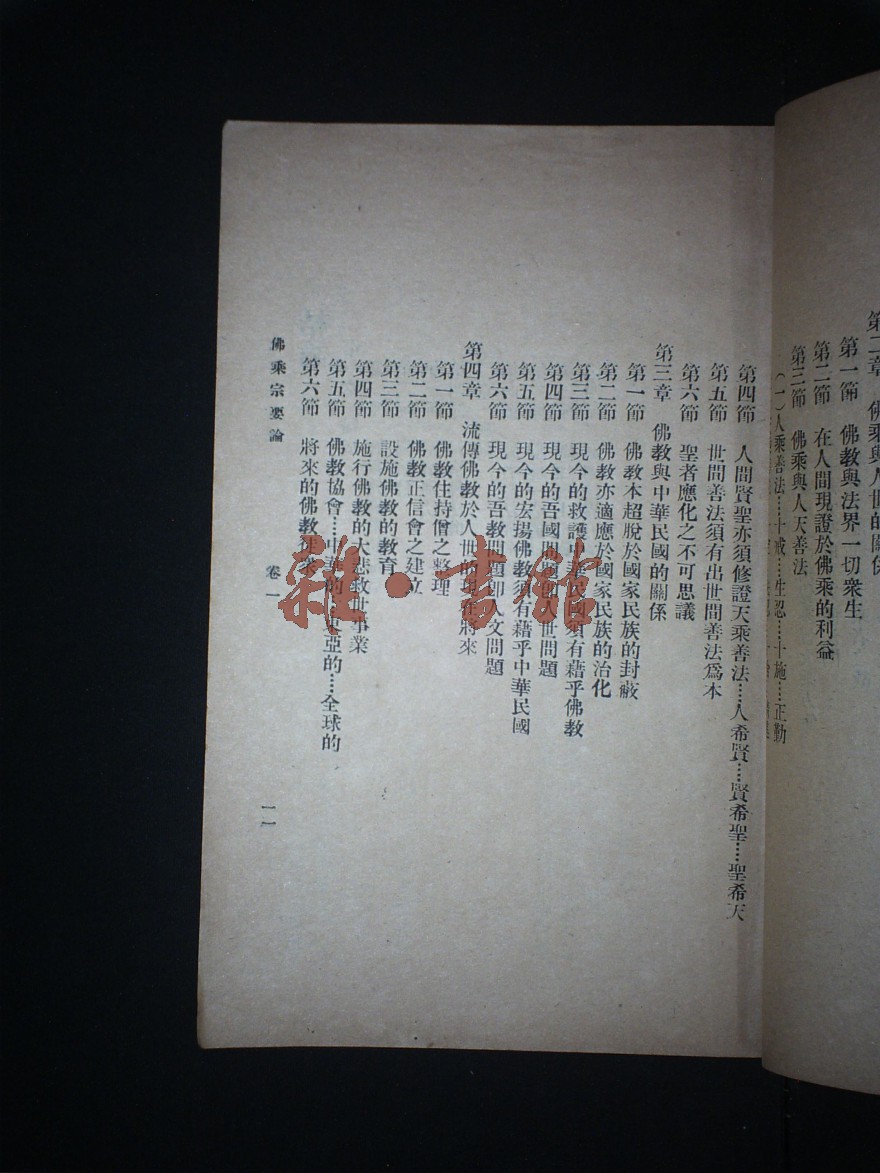 第二章　佛乘與人世的關係
第一節　佛教與法界一切衆生
第二節　在人間現證於佛乘的利益
第三節　佛乘與人天善法
(一)人乘善法……十戒……生認……十施……正勤
第四節　人間賢聖亦須修證天乘善法……人希賢……賢希聖……聖希天
第五節　世間善法須有出世間善法爲本
第六節　聖者應化之不可思議
第三章　佛教與中華民國的關係
第一節　佛教本超脫於國家民族的封蔽
第二節　佛教亦適應於國家民族的治化
第三節　現今的救護中華民國須有藉乎佛教
第四節　現今的吾國問題卽人世問題
第五節　現今的宏揚佛教須有藉乎中華民國
第六節　現今的吾教問題卽人文問題
第四章　流傳佛教於人世的現在將來
第一節　佛教住持僧之整理
第二節　佛教正信會之建立
第三節　設施佛教的教育
第四節　施行佛教的大悲救世事業
第五節　佛教協會……中華的……東亞的……全球的
第六節　將來的佛教徒衆
佛乘宗要論　卷一　一一
雜·書館